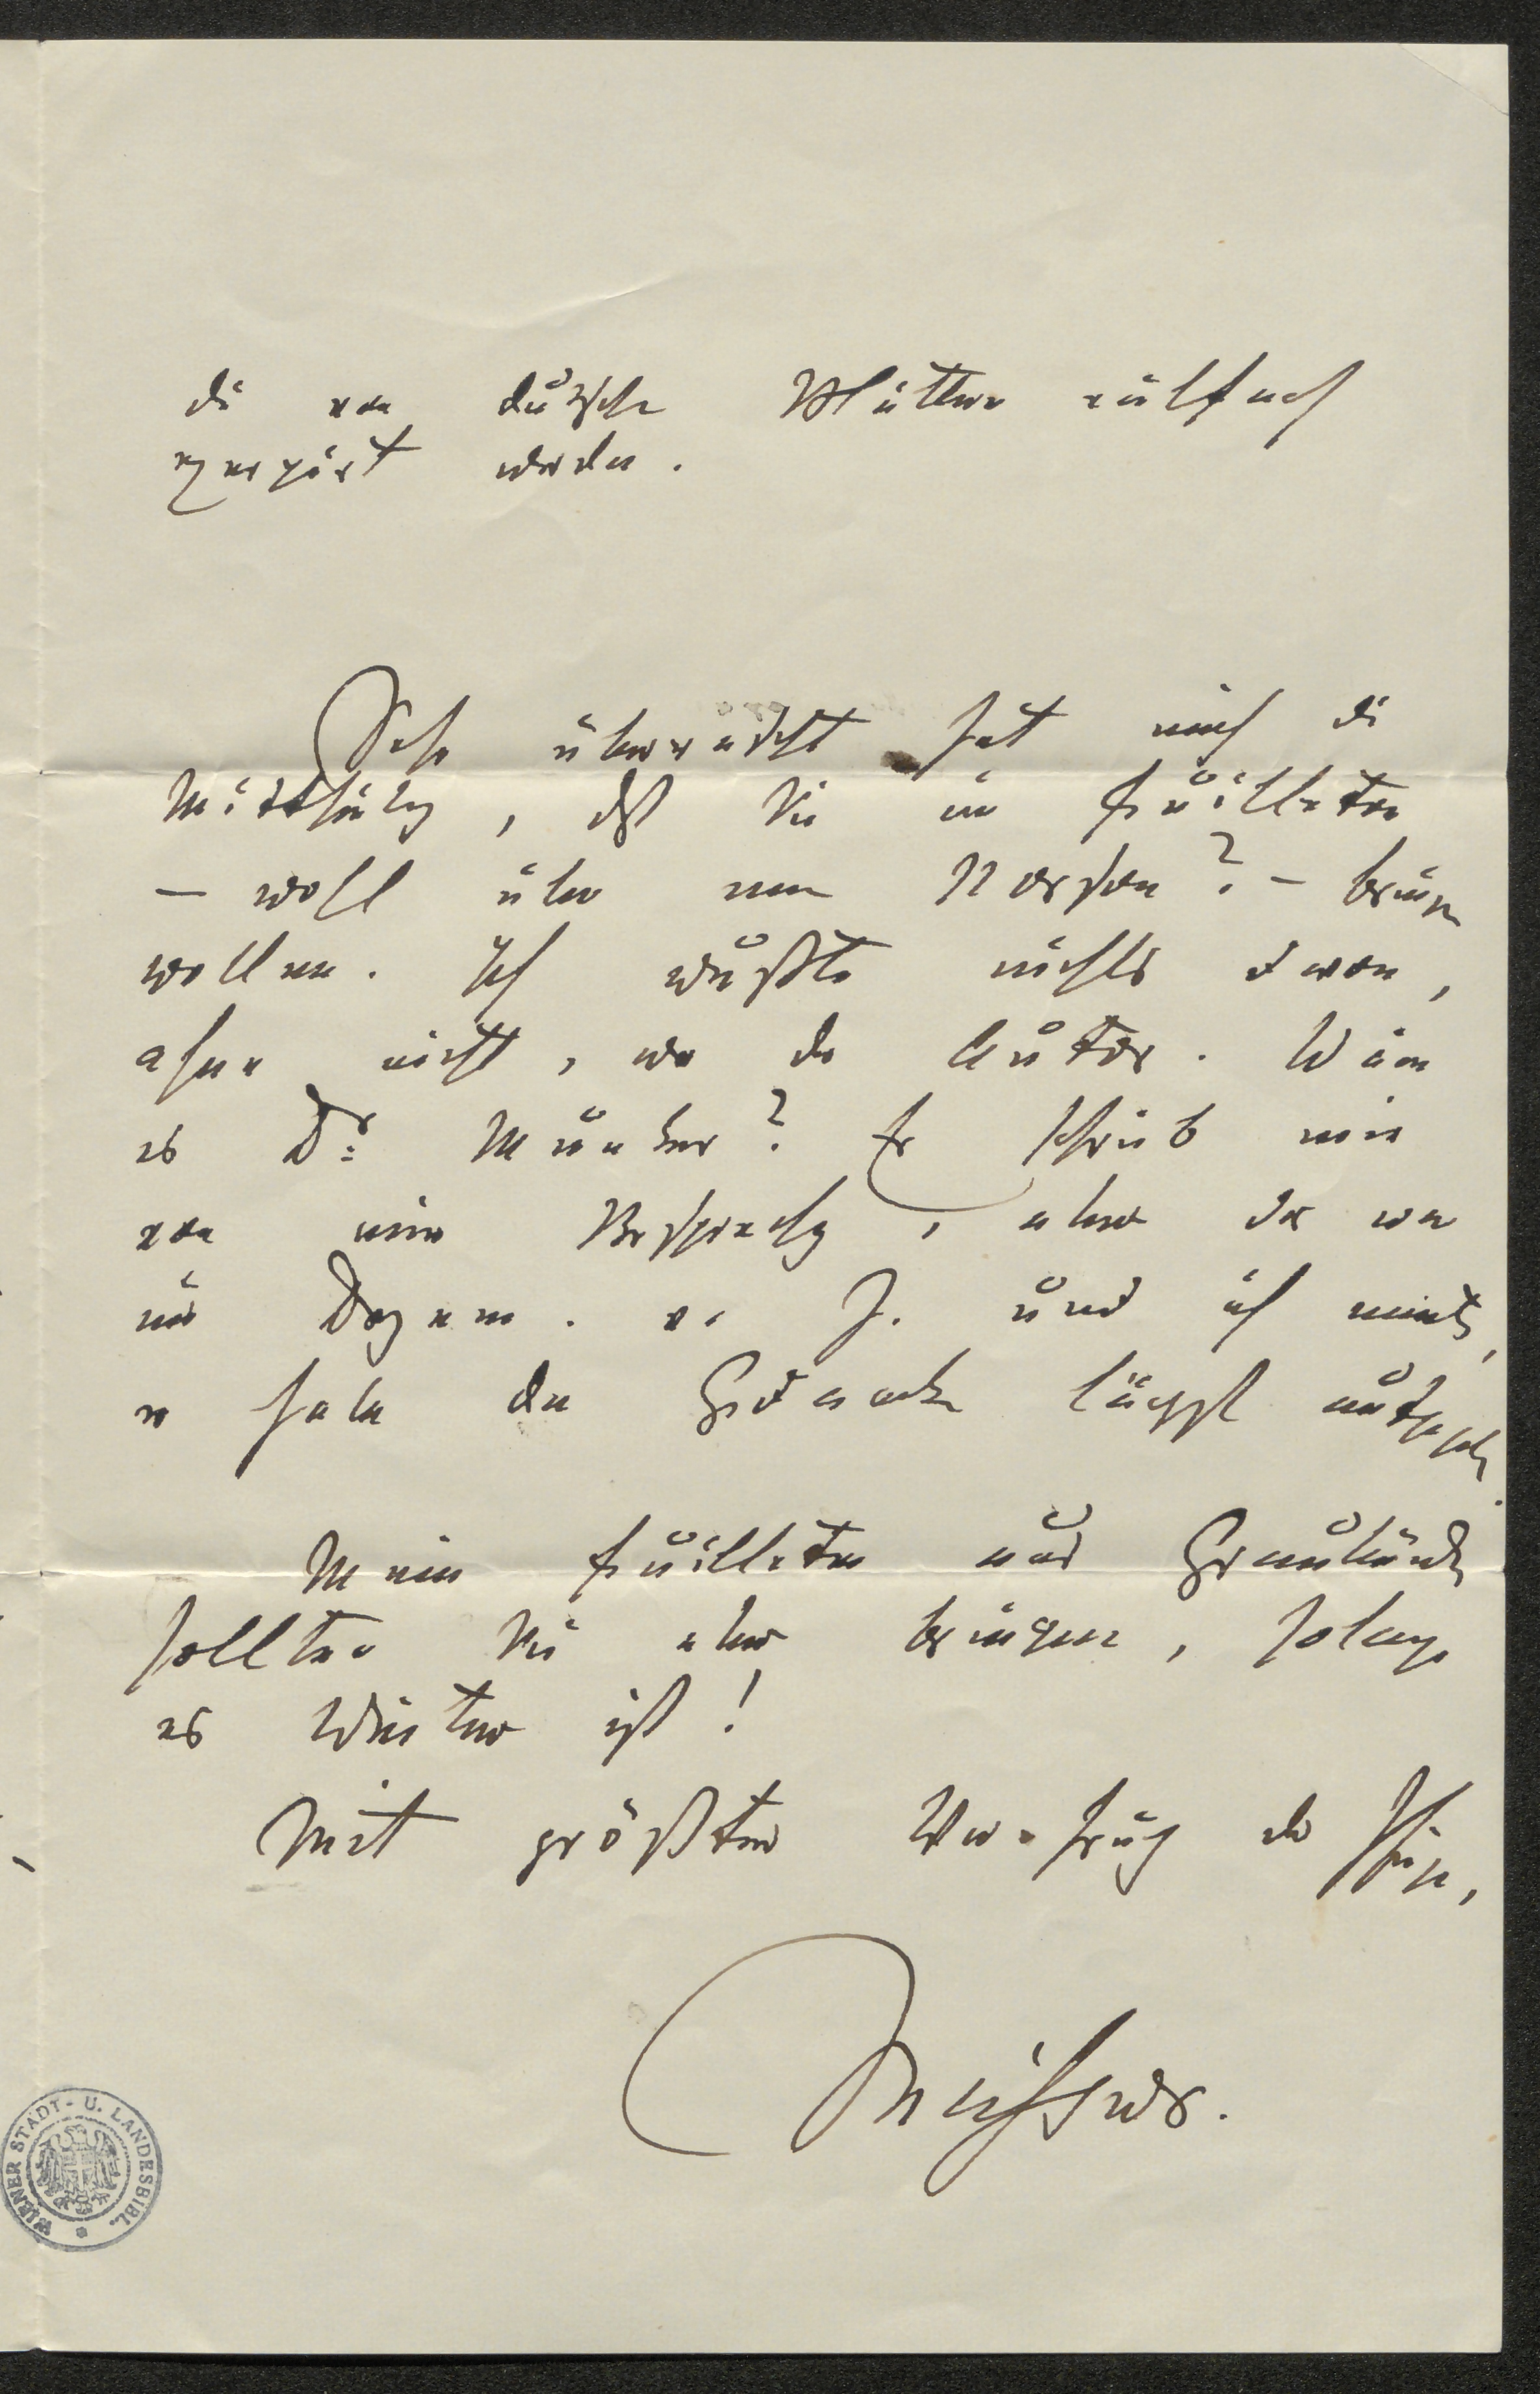 die von deutschen Blättern vielfach
exzerpirt werden.
Sehr überrascht hat mich die
Mittheilung, daß Sie ein Feuilleton
– wohl über meine Person? – bringen
wollen. Ich wußte nichts davon,
ahne nicht, wer der Autor. Wäre
es Dr. Muncker? Er schrieb mir
von einer Besprechung, aber das war
im Dezem. v. J. und ich meinte,
er habe den Gedanken längst aufgegeben.
Mein Feuilleton aus Graubünden
sollten Sie aber bringen, solange
es Winter ist!
Mit größter Verehrung der Ihrige,
Meißner.
WIENER STADT- U. LANDESBIBL.